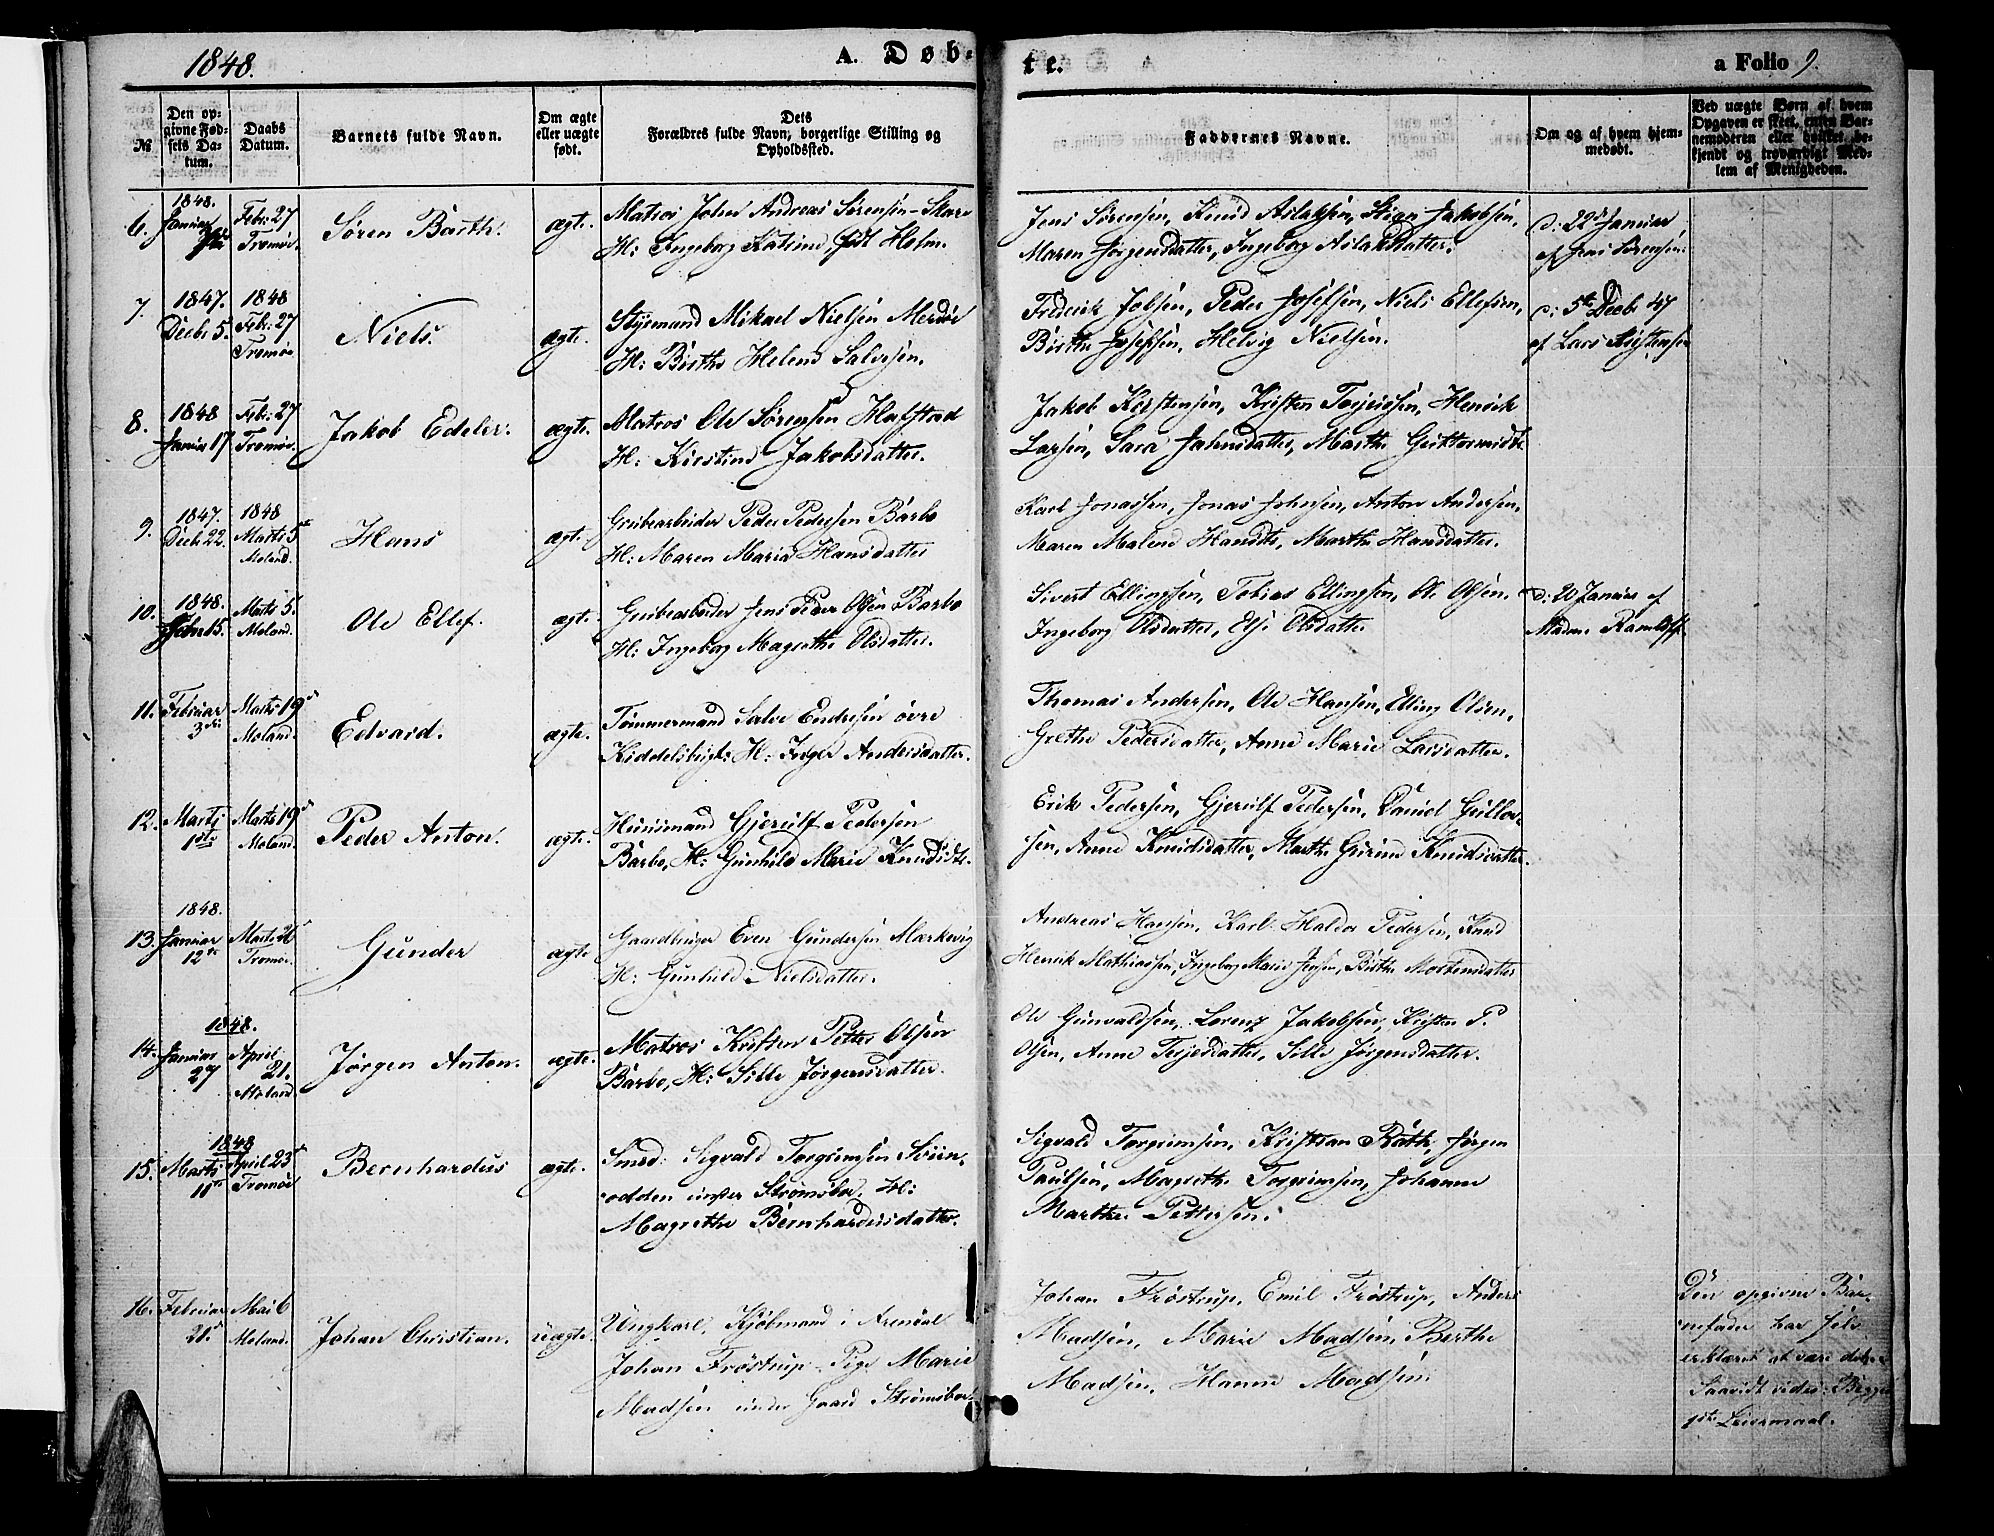 1848.
A. Døb-
te.
a Folio 9.
№
Den opgivne Fødsels Datum.
Daabs Datum.
Barnets fulde Navn.
Om ægte eller uægte født.
Dets Forældres fulde Navn, borgerlige Stilling og Opholdssted.
Faddernes Navne.
Om og af hvem hjemmedøbt.
Ved uægte Børn af hvem Opgaven er skeet, enten Barnemoderen eller hvilket bekjendt og troværdigt Medlem af Menigheden.
6. 1848. Januar
Febr: 27 Tromøe.
Søren Barth.
ægte.
Matros John Andreas Sørensen
H: Ingeborg Katrine født Holm.
Jens Sørensen, Knud Aslaksen, Stian Jakobsen,
Maren Jørgensdatter, Ingeborg Aslaksdatter.
d: 22d Januar
af Jens Sørensen.
7. 1847. Decbr 5.
1848 Feb: 27 Tromøe
Niels.
ægte.
Styrmand Mikael Nielsen Merdøe
H: Birthe Helene Salvesen.
Frederik Jobsen, Peder Josefsen, Niels Ellefsen,
Birthe Josefsen, Helvig Nielsen.
d: 5te Decbr 47
af Lars
8. 1848 Januar 17.
Feb: 27 Tromøe.
Jakob Edeler.
ægte.
Matros Ole Sørensen
H: Kirstine Jakobsdatter.
Jakob Kirstensen, Kristen Terjesen, Henrik
Larsen, Sara Jahnsdatter, Marthe
9. 1847. Decbr 22.
1848 Marts 5te Moland.
Hans
ægte.
Grubearbeider Peder Pedersen Barbo
H: Maren Maria Hansdatter
Karl Jonassen, Jonas Johnsen, Anton Andersen,
Maren Malene Hansdtr, Marthe Hansdatter.
10. 1848. 15.
Marts 5. Moland.
Ole Ellef.
ægte.
Grubearbeider Jens Peder Olsen Barbo
H: Ingeborg Magrethe Olsdatter.
Sivert Ellingsen, Tobias Ellingsen, Ole Olsen,
Ingeborg Olsdatter, Else Olsdatter
d: 20 Januar af
Madme
11. Februar 3die
Marts 19d Moland.
Edvard.
ægte.
Tømmermand Salve Endresen øvre
H: Inger Andersdatter.
Thomas Andersen, Ole Hansen, Elling Olsen,
Grethe Pedersdatter, Anne Marie Larsdatter.
12. Marts 1ste
Marts 19d Moland.
Peder Anton.
ægte.
Huusmand Gjerulf Pedersen
Barbo, H: Gunhild Marie Knudsdtr.
Erik Pedersen, Gjerulf Pedersen, Daniel Gullov-
sen, Anne Knudsdatter, Marthe Gurine Knudsdatter.
13. 1848. Januar 12te
Marts 26 Tromøe.
Gunder
ægte
Gaardbruger Even Gundersen Mærkevig
H: Gunhild Nielsdatter.
Andreas Hansen, Karl Haldor Pedersen, Knud
Henrik Mathiassen, Ingeborg Marie Jensen, Birthe Mortensdatter
14. 1848. Januar 27
April 21. Moland.
Jørgen Anton.
ægte.
Matros Kristen Petter Olsen
Barbo, H: Sille Jørgensdatter.
Ole Gunvaldsen, Lorenz Jakobsen, Kristen P.
Olsen, Anne Terjesdatter, Sille Jørgensdatter.
15. 1848 Marts 11te
April 23d Tromøe
Bernhardus
ægte.
Smed Sigvald Torgrimsen
odden under Strømsboe. H:
Magrethe Bernhardusdatter.
Sigvald Torgrimsen, Kristian Rath, Jørgen
Paulsen, Magrethe Torgrimsen, Johanne
Marthe Pettersen.
16. Februar
Mai 6 Moland.
Johan Christian.
uægte.
Ungkarl, Kjøbmand i Arendal
Johan Frøstrup. Pige Marie
Madsen under Gaard Strømsboe.
Johan Frøstrup, Emil Frøstrup, Anders
Madsen, Marie Madsen, Berthe
Madsen, Hanne Madsen
Den opgivne Bar-
nefader har selv
erklæret at være det
Saavidt vides Begges
1ste Leiermaal.